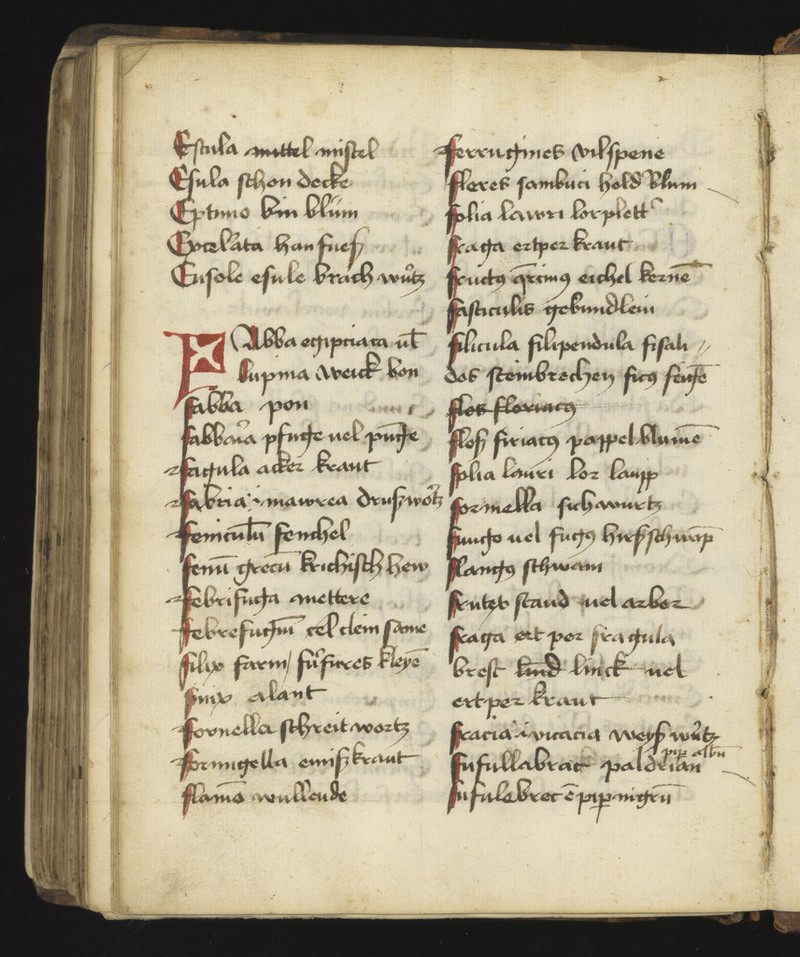 Escula mittel mistel
Esula schon decke
Eptimo bin blům
Epcelata han fueß
Eusole esule brach wurtz
FAbba egipciaca vel
lupina weick bon
fabba pon
fabbaria pfunge uel punge
facula acker kraut
fabria .i. mawrea drußwortz
feniculum fenchel
fenum grecum krichisch hew
febrifuga mettere
febrefugium cel clein same
filix farm / furfures kleyen
finix alant
fornella schreit wortz
formigella emiß kraut
flamen wullende
ferrugines vilspene
flores sambuci hold blum
folia lawri lorplett
fraga ertper kraut
fructus quercinus eichel kernen
fasticulis gebundlein
filicula filipendula fisali
dos steinbrechen ficus feigen
flos floriacus
floß siriacus pappel blumen
folia lauri lor laupp
formella sichwurtz
fungo uel fugus hirßschwamp
flangus schwam
frutex staud uel arbor
fraga ert per fragula
brest lind linck uel
ertper kraut
fracia .i. vicacia weyß wurtz
pip album
fufullabrac paldrian
fufulebrec est piper nigrum